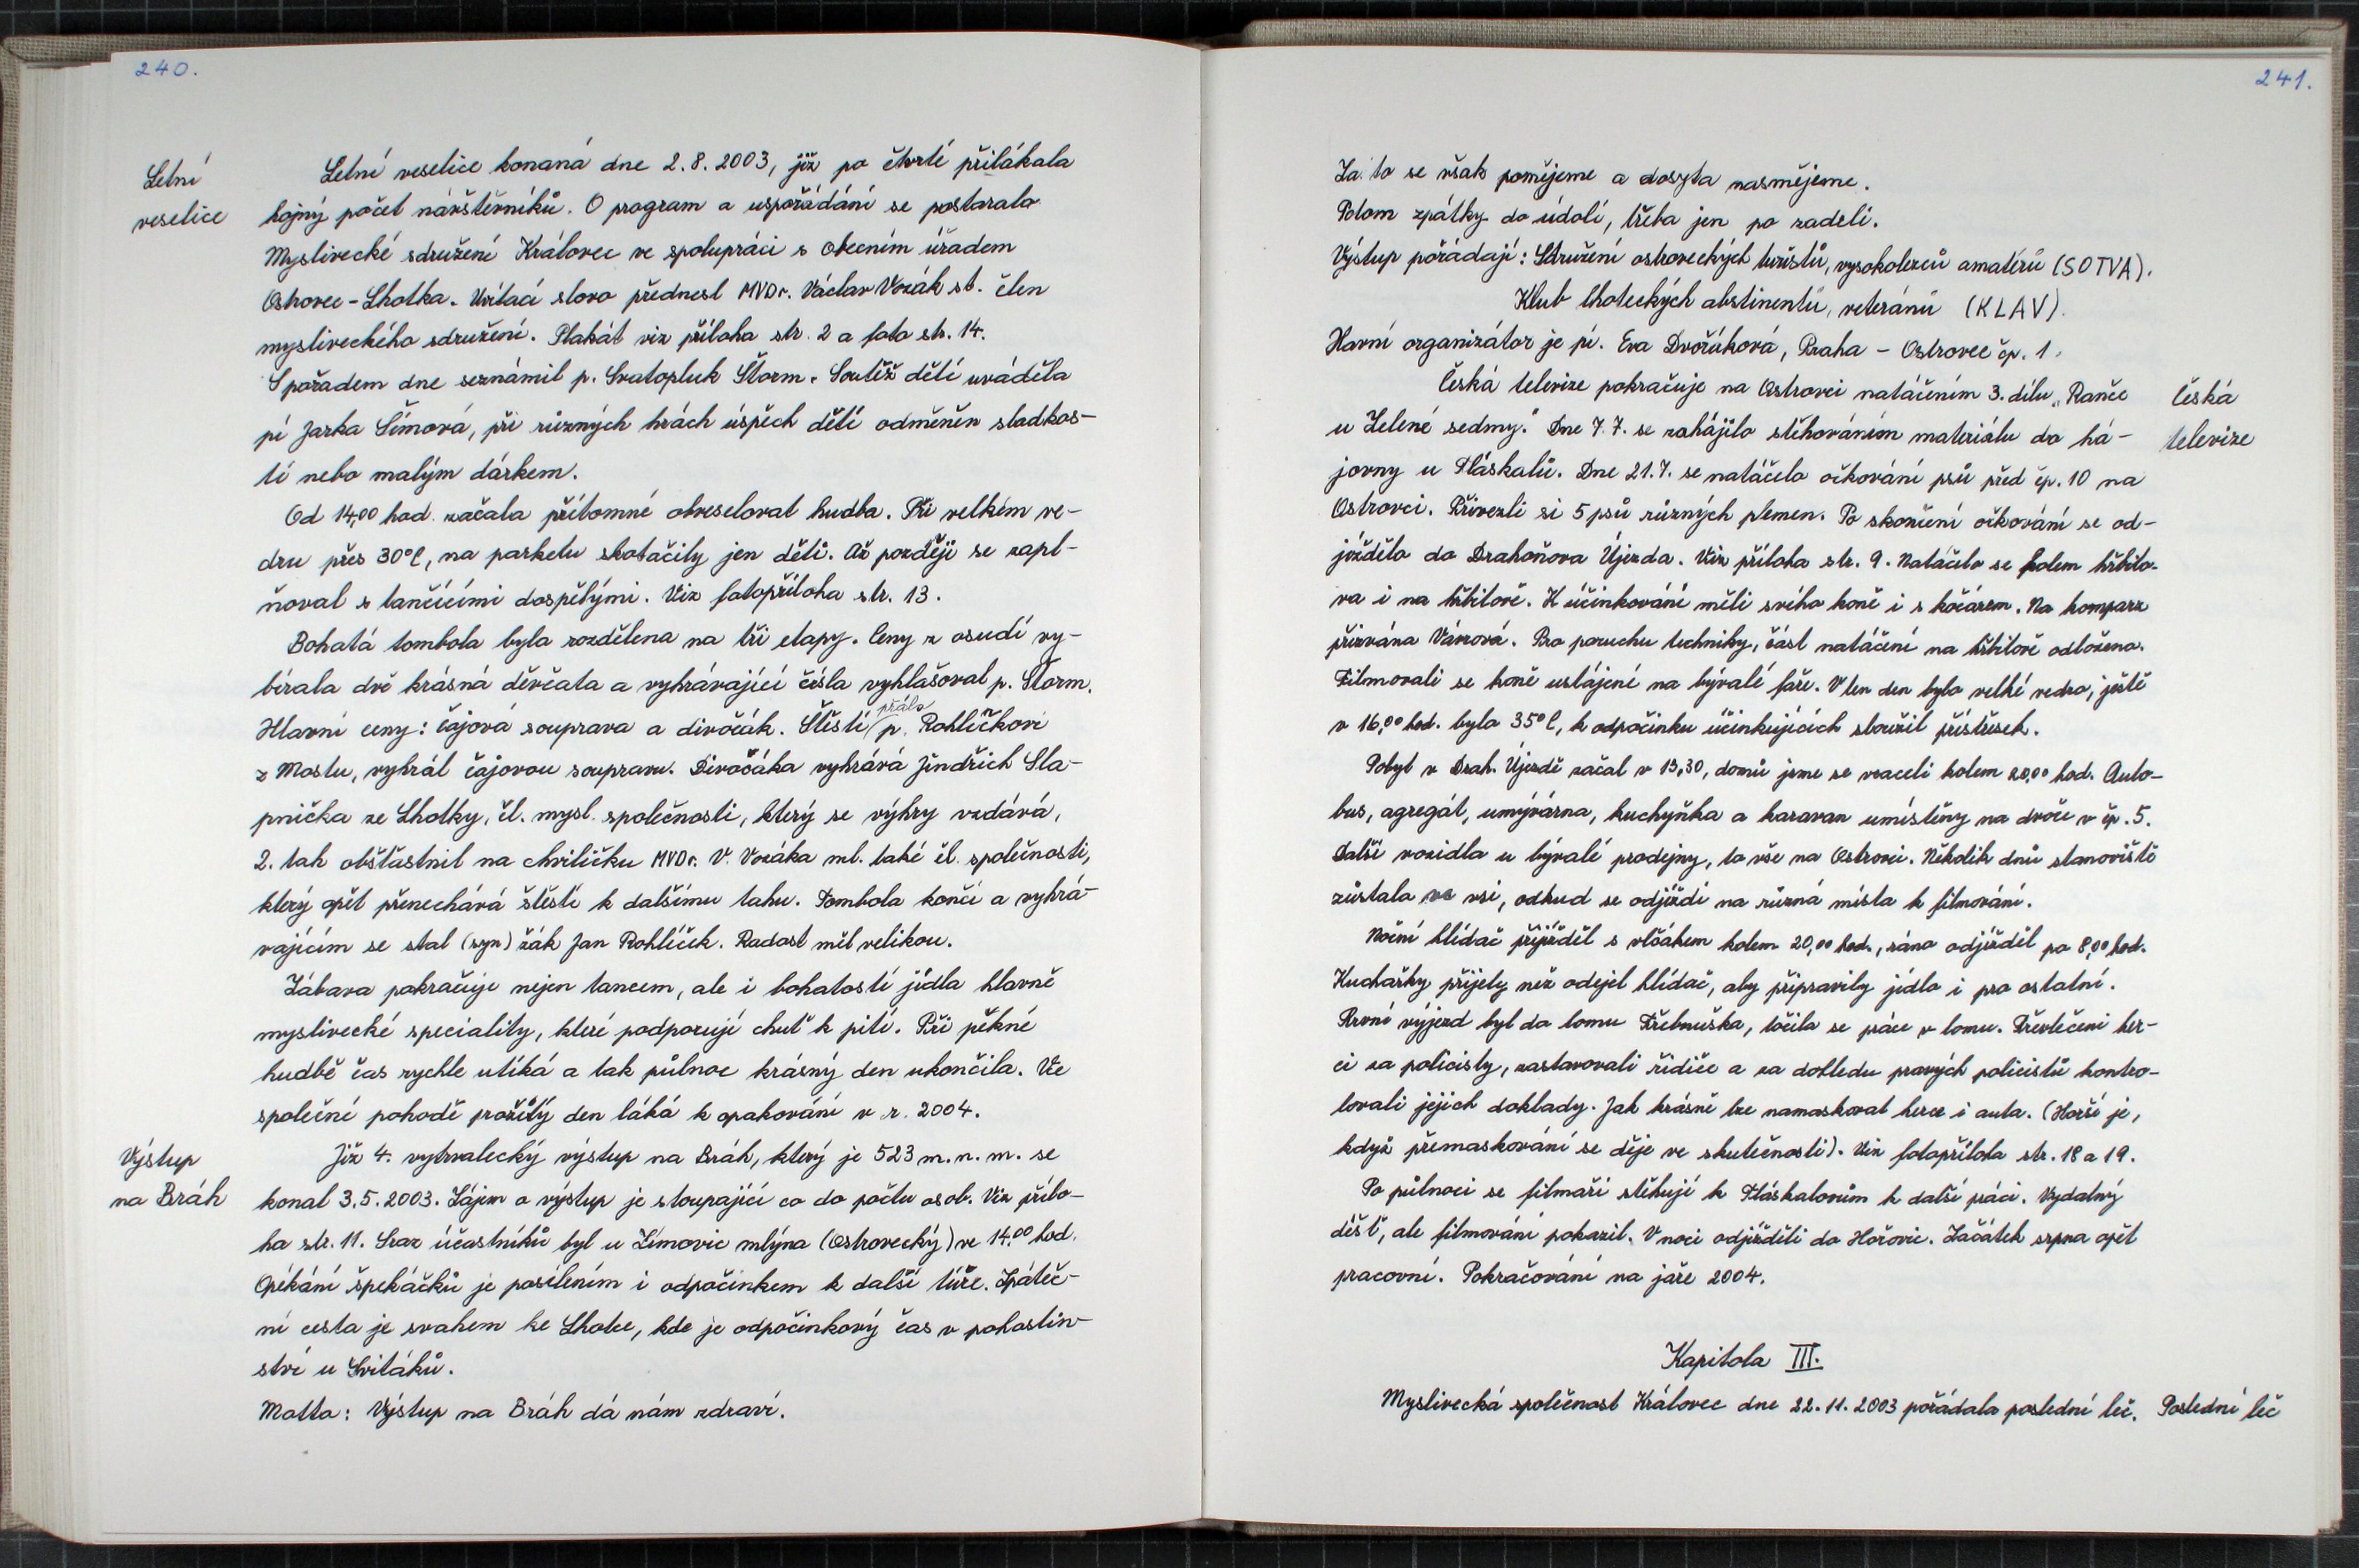 240.
Letní
veselice
Letní veselice konaná dne 2.8.2003, již po čtvrté přilákala
hojný počet návštěvníků. O program a uspořádání se postaralo
Myslivecké sdružení Královec ve spolupráci s Obecním úřadem
Ostrovec-Lhotka. Uvítací slovo přednesl MVDr. Václav Vozák st. člen
mysliveckého sdružení. Plakát viz příloha str. 2 a foto str. 14.
S pořadem dne seznámil p. Svatopluk Štorm. Soutěž dětí uváděla
pí Jarka Šímová, při různých hrách úspěch dětí odměněn sladkos-
tí nebo malým dárkem.
Od 14,00 hod. začala přítomné obveselovat hudba. Při velkém ve-
dru přes 30°C, na parketu skotačily jen děti. Až později se zapl-
ňoval s tančícími dospělými. Viz fotopříloha str. 13.
Bohatá tombola byla rozdělena na tři etapy. Ceny z osudí vy-
bírala dvě krásná děvčata a vyhrávající čísla vyhlašoval p. Štorm.
Hlavní ceny: čajová souprava a divočák. Štěstí přálo p. Rohlíčkovi
z Mostu, vyhrál čajovou soupravu. Divočáka vyhrává Jindřich Sla-
pnička ze Lhotky, čl. mysl. společnosti, který se výhry vzdává,
2. tah obšťastnil na chviličku MVDr. V. Vozáka ml. také čl. společnosti,
který opět přenechává štěstí k dalšímu tahu. Tombola končí a vyhrá-
vajícím se stal (syn) žák Jan Rohlíček. Radost měl velikou.
Zábava pokračuje nejen tancem, ale i bohatostí jídla hlavně
myslivecké speciality, které podporují chuť k pití. Při pěkné
hudbě čas rychle utíká a tak půlnoc krásný den ukončila. Vše
společné pohodě prožitý den láká k opakování v r. 2004.
Výstup
na Bráh
Již 4. vytrvalecký výstup na Bráh, který je 523 m.n.m. se
konal 3.5.2003. Zájem o výstup je stoupající co do počtu osob. Viz přílo-
ha str. 11. Sraz účastníků byl u Zímovic mlýna (Ostrovecký) ve 14,00 hod.
Opékání špekáčků je posílením i odpočinkem k další túře. Zpáteč-
ní cesta je svahem ke Lhotce, kde je odpočinkový čas v pohostin-
ství u Svitáků.
Motto: Výstup na Bráh dá nám zdraví.
241.
Za to se však pomějeme a dosyta nasmějeme.
Potom zpátky do údolí, třeba jen po zadeli.
Výstup pořádají: Sdružení ostroveckých turistů, vysokolezců amatérů (SOTVA).
Klub lhoteckých abstinentů, veteránů (KLAV).
Havní organizátor je pí. Eva Dvořáková, Praha - Ostrovec čp. 1.
Česká televize pokračuje na Ostrovci natáčením 3. dílu „Ranče
u Zelené sedmy." Dne 7.7. se zahájilo stěhováním materiálu do há-
Česká
televize
jovny u Pláskalů. Dne 21.7. se natáčelo očkování psů před čp. 10 na
Ostrovci. Přivezli si 5 psů různých plemen. Po skončení očkování se od-
jíždělo do Drahoňova Újezda. Viz příloha str. 9. Natáčelo se kolem hřbito-
va i na hřbitově. K účinkování měli svého koně i s kočárem. Na komparz
přizvána Vávrová. Pro poruchu techniky, část natáčení na hřbitově odložena.
Filmovali se koně ustájení na bývalé faře. V ten den bylo velké vedro, ještě
v 16,00 hod. bylo 35°C, k odpočinku účinkujících sloužil přístřešek.
Pobyt v Drah. Újezdě začal v 13,30, domů jsme se vraceli kolem 20,00 hod. Auto-
bus, agregát, umývárna, kuchyňka a karavan umístěny na dvoře v čp. 5.
Další vozidla u bývalé prodejny, to vše na Ostrovci. Několik dnů stanoviště
zůstala ve vsi, odkud se odjíždí na různá místa k filmování.
Noční hlídač přijížděl s vlčákem kolem 20,00 hod., ráno odjížděl po 8,00 hod.
Kuchařky přijely než odejel hlídač, aby připravily jídlo i pro ostatní.
První výjezd byl do lomu Třebnuška, točila se práce v lomu. Převlečeni her-
ci za policisty, zastavovali řidiče a za dohledu pravých policistů kontro-
lovali jejich doklady. Jak krásně lze namaskovat herce i auta. (Horší je,
když přemaskování se děje ve skutečnosti). Viz fotopříloha str. 18 a 19.
Po půlnoci se filmaři stěhují k Pláskalovům k další práci. Vydatný
déšť, ale filmování pokazil. V noci odjížděli do Hořovic. Začátek srpna opět
pracovní. Pokračování na jaře 2004.
Kapitola III.
Myslivecká společnost Královec dne 22.11.2003 pořádala poslední leč.
Poslední leč